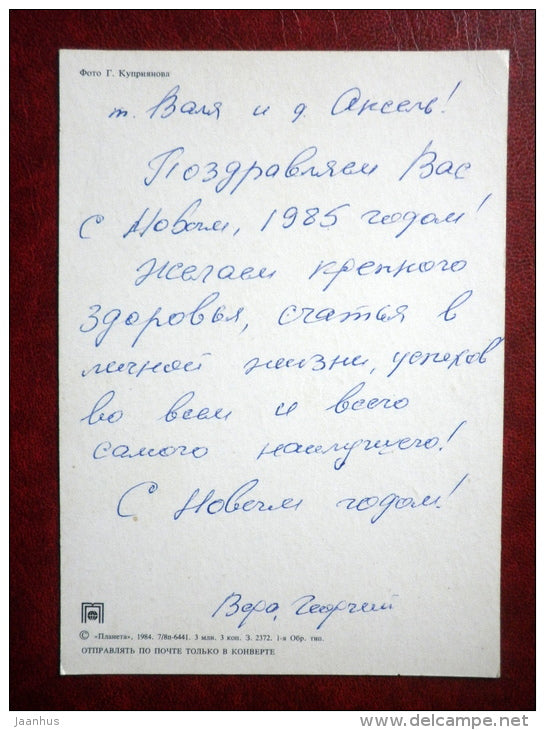 Фото Г. Куприянова
т. Валя и д. Аксель!
Поздравляем Вас
с Новым, 1985 годом!
Желаем крепкого
здоровья, счастья в
личной жизни, успехов
во всем и всего
самого наилучшего!
С Новым годом!
Вера, Георгий
© «Планета», 1984. 7/8п-6441. 3 млн. 3 коп. З. 2372. 1-я Обр. тип.
ОТПРАВЛЯТЬ ПО ПОЧТЕ ТОЛЬКО В КОНВЕРТЕ
jaanhus
www.delcampe.net